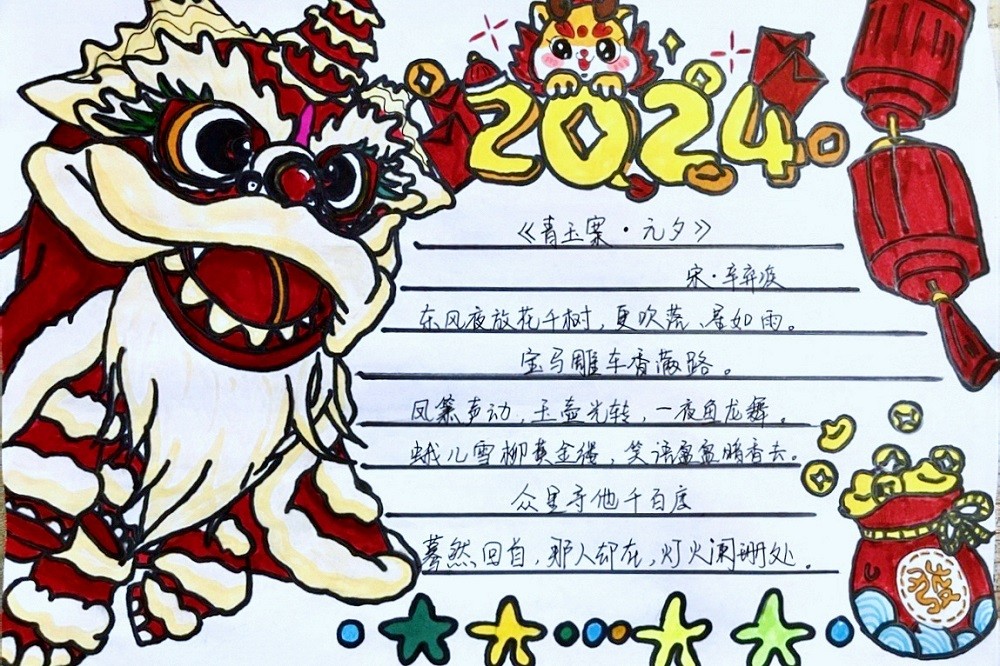 2024
《青玉案·元夕》
宋·辛弃疾
东风夜放花千树，更吹落、星如雨。
宝马雕车香满路。
凤箫声动，玉壶光转，一夜鱼龙舞。
蛾儿雪柳黄金缕，笑语盈盈暗香去。
众里寻他千百度
蓦然回首，那人却在，灯火阑珊处。
發